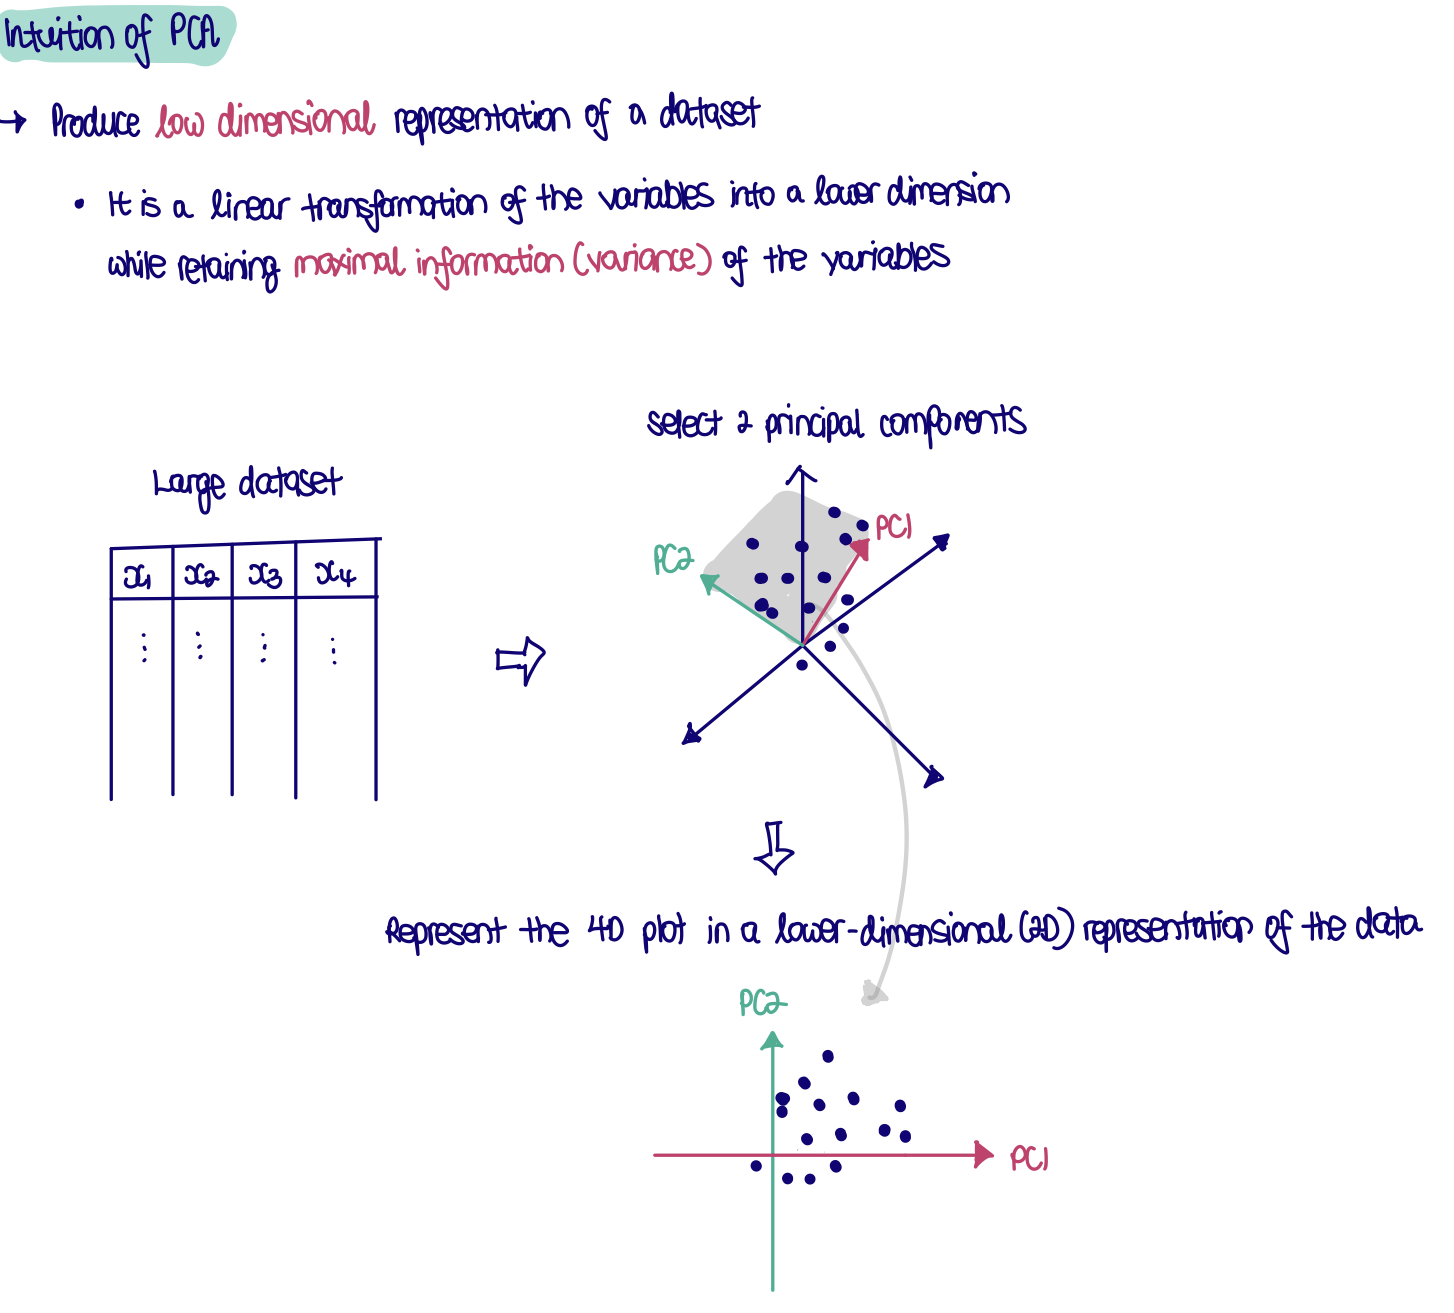 Intuition of PCA
→ Produce low dimensional representation of a dataset
• It is a linear transformation of the variables into a lower dimension
while retaining maximal information (variance) of the variables
select 2 principal components
Large dataset
PC1
PC2
x₁ x₂ x₃ x₄
Represent the 4D plot in a lower-dimensional (2D) representation of the data
PC2
PC1